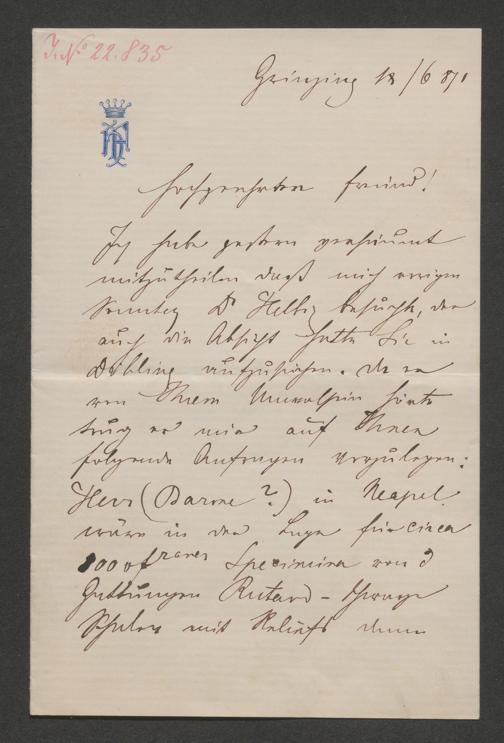 J. No 22.835
Grinzing 18/6 871
Hochgeehrter Freund!
Ich habe gestern versäumt
mitzutheilen daß mich vorigen
Sonntag Dr Helbig besucht, der
auch die Absicht hatte Sie in
Döbling aufzusuchen. Da er
von Ihrem Unwolsein hörte
trug er mir auf Ihnen
folgende Anfragen vorzulegen:
Herr (Barone?) in Neapel
wäre in der Lage für circa
francs Specimina von 3
Gattungen - schwarze
Schalen mit Reliefs dann